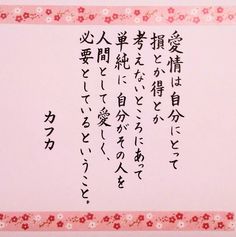 愛情は自分にとって
損とか得とか
考えないところにあって
単純に自分がその人を
人間として愛しく、
必要としているということ。
カフカ